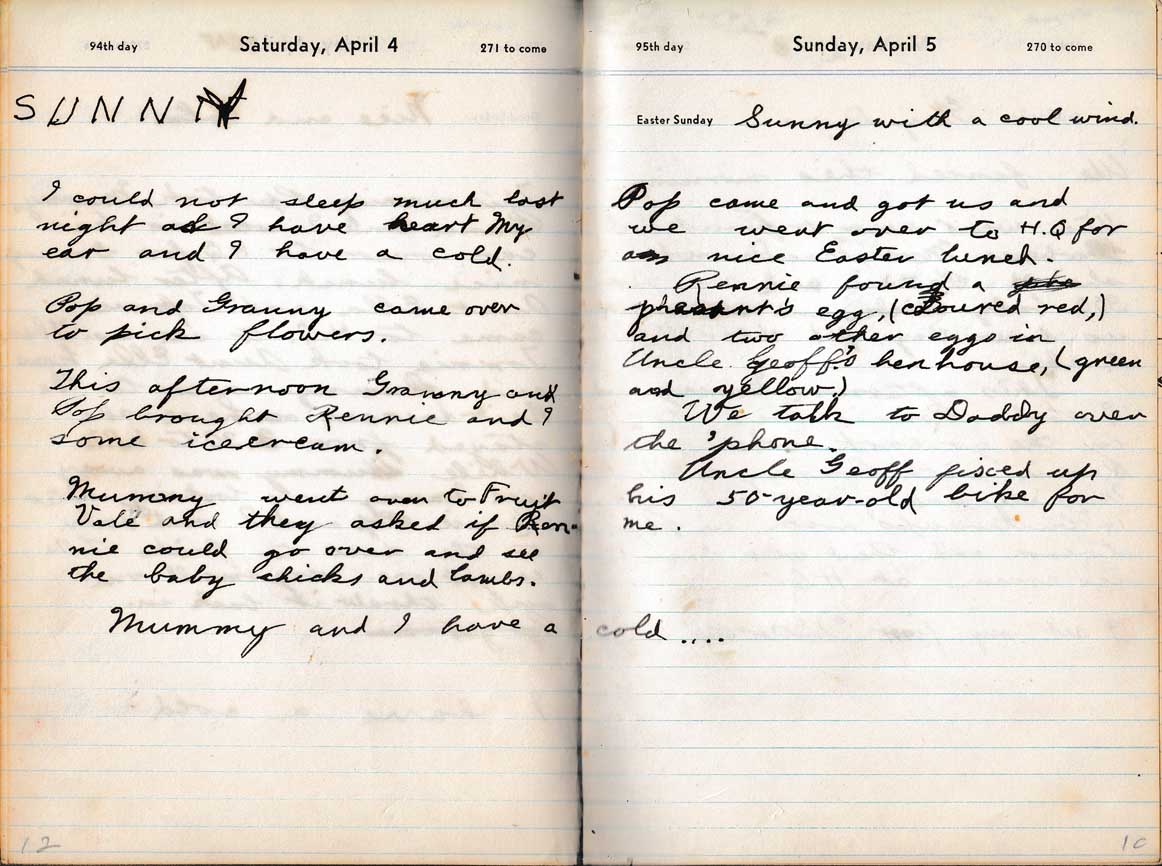 94th day Saturday, April 4 271 to come
SUNNY
I could not sleep much last
night as I have heart My
ear and I have a cold.
Pop and Granny came over
to pick flowers.
This afternoon Granny and
Pop brought Rennie and I
some icecream.
Mummy went over to Fruit
Vale and they asked if Ren-
nie could go over and see
the baby chicks and lambs.
Mummy and I have a cold....
12
95th day Sunday, April 5 270 to come
Easter Sunday Sunny with a cool wind.
Pop came and got us and
we went over to H.Q for
a nice Easter lunch.
Rennie found a
pheasant's egg, (coloured red,)
and two other eggs in
Uncle Geoff's henhouse, (green
and yellow.)
We talk to Daddy over
the 'phone.
Uncle Geoff fixed up
his 50-year-old bike for
me.
10